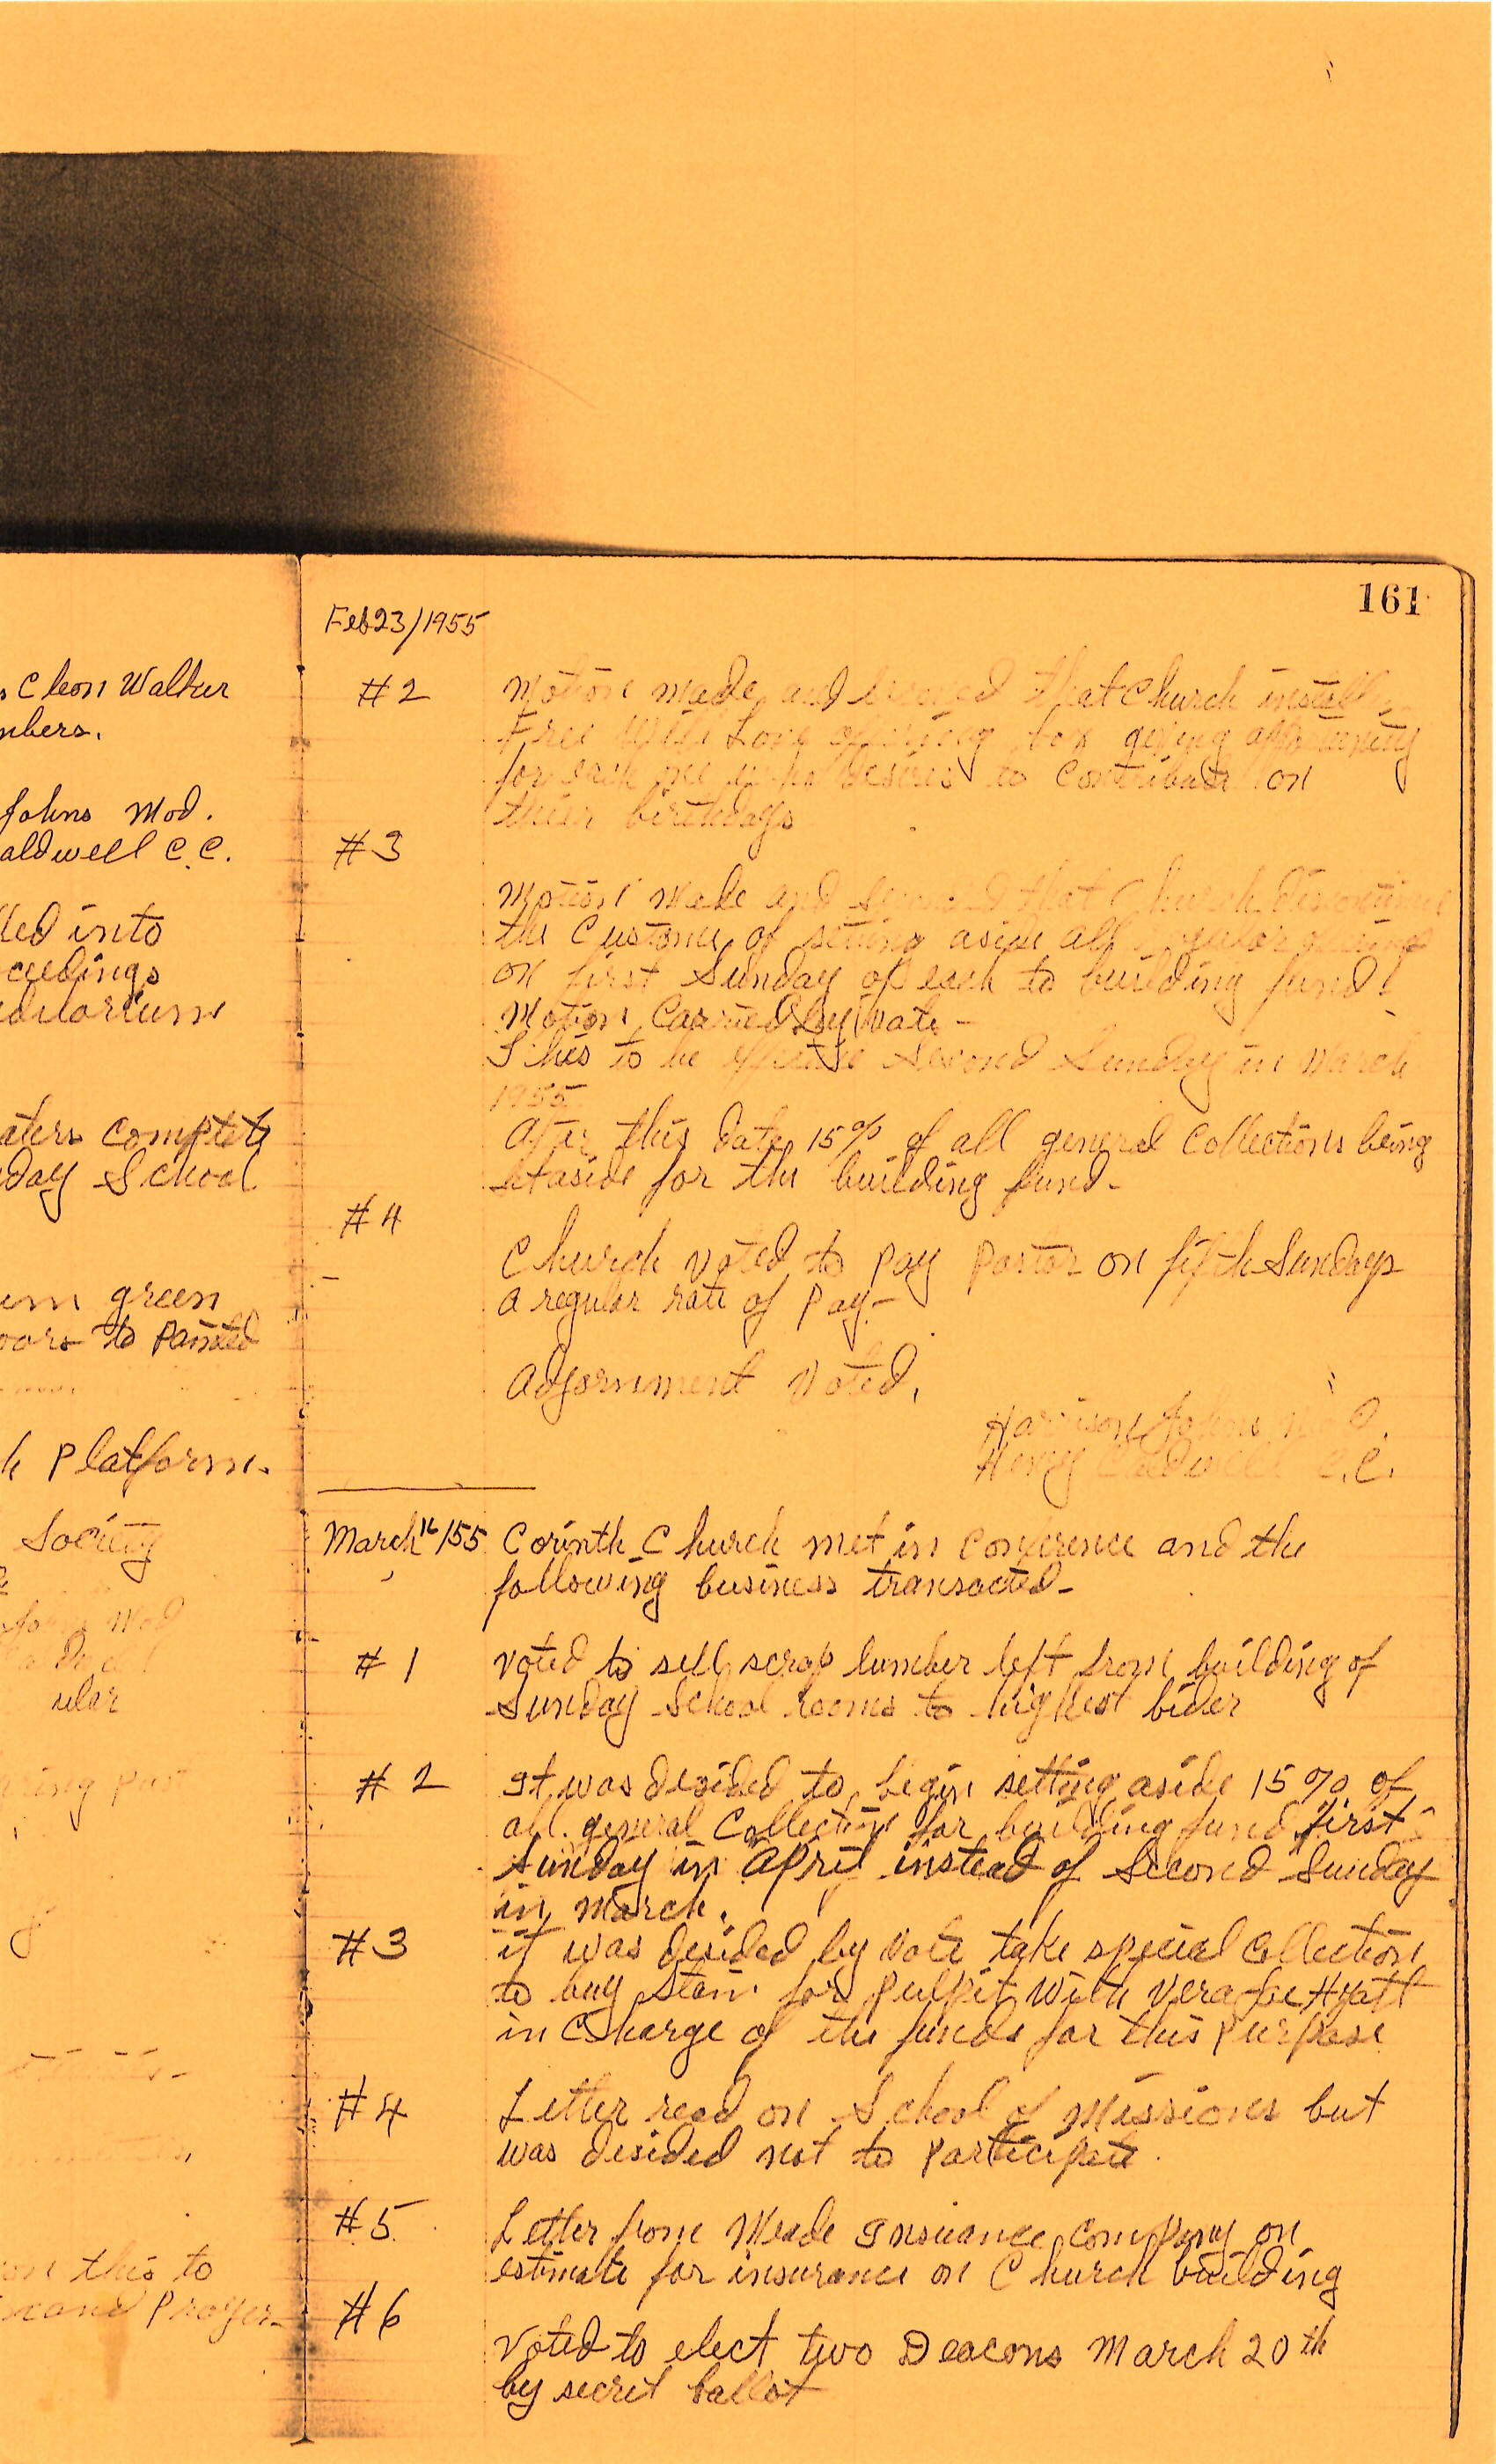 s Cleon Walker
mbers.
Johns Mod.
aldwell C.C.
led into
ceedings
aters complete
day School
green
oors to Painted
h Platform.
Society
Johns Mod
ular
ring past
on this to
Prayer-
161
Feb 23/1955
#2 Motion made and that Church install
Free Will Love offering box giving
for each one who desires to contribute on
their birthdays
#3
Motion made and that Church
the Custome of setting aside all
on first Sunday of each to building fund!
Motion Carried by vote -
This to be Second Sunday in March
1955
After this date 15% of all general Collections being
set aside for the building fund.
#4
Church voted to pay Pastor on fifth Sundays
a regular rate of Pay -
adjornment voted.
Harrison Johns Mod.
Henry Caldwell C.C.
March 16/55 Corinth Church met in Conference and the
following business transacted -
#1 voted to sell scrap lumber left from building of
Sunday School rooms to highest bider
#2 It was desided to begin setting aside 15% of
all general Collection for building fund first
Sunday in April instead of Second Sunday
in March.
#3 it was desided by vote take special Collection
to buy Stain for Pulpit with Vera Hyatt
in Charge of the funds for this Purpose
#4 Letter read on School of Missions but
was desided not to Participate.
#5 Letter from Meade Insuance Company on
estimate for insurance on Church building
#6
Voted to elect two Deacons March 20th
by secret ballot